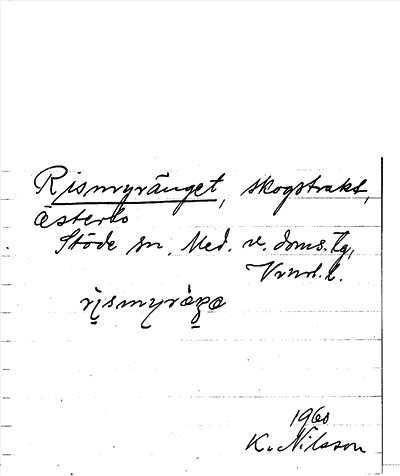 Rismyränget, skogstrakt,
Österlo
Stöde sn. Med. v. doms. tg,
Vrnrl. l.
rismyräŋa
1960
K. Nilsson